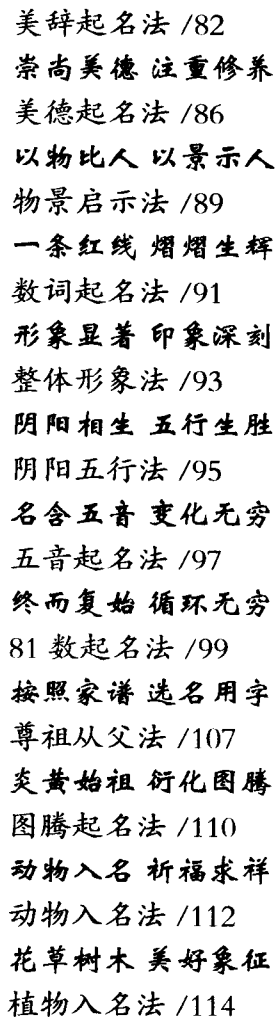 美辞起名法 /82
崇尚美德 注重修养
美德起名法 /86
以物比人 以景示人
物景启示法 /89
一条红线 熠熠生辉
数词起名法 /91
形象显著 印象深刻
整体形象法 /93
阴阳相生 五行生胜
阴阳五行法 /95
名含五音 变化无穷
五音起名法 /97
终而复始 循环无穷
81 数起名法 /99
按照家谱 选名用字
尊祖从父法 /107
炎黄始祖 衍化图腾
图腾起名法 /110
动物入名 祈福求祥
动物入名法 /112
花草树木 美好象征
植物入名法 /114